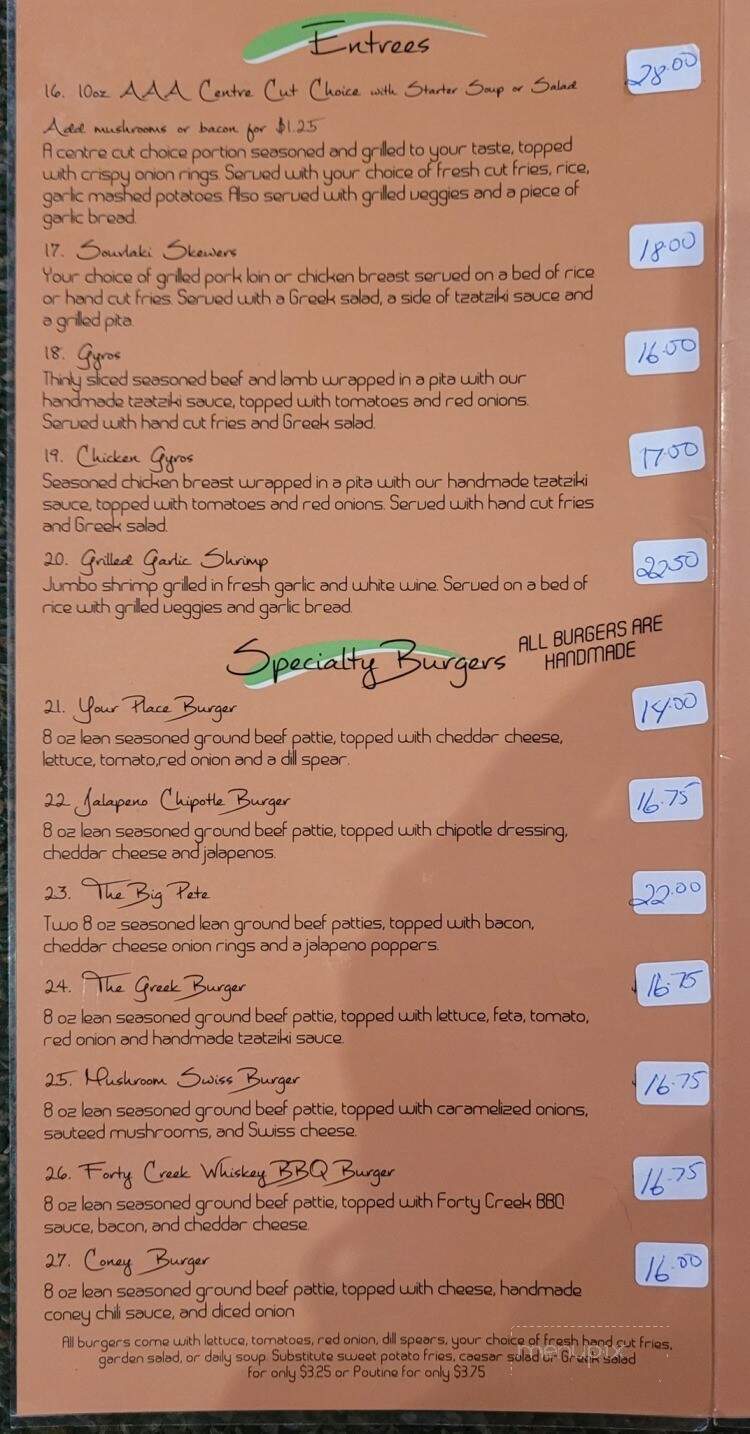 Entrees
16. 10oz AAA Centre Cut Choice with Starter Soup or Salad 28.00
Add mushrooms or bacon for $1.25
A centre cut choice portion seasoned and grilled to your taste, topped
with crispy onion rings. Served with your choice of fresh cut fries, rice,
garlic mashed potatoes. Also served with grilled veggies and a piece of
garlic bread.
17. Souvlaki Skewers 18.00
Your choice of grilled pork loin or chicken breast served on a bed of rice
or hand cut fries. Served with a Greek salad, a side of tzatziki sauce and
a grilled pita.
18. Gyros 16.00
Thinly sliced seasoned beef and lamb wrapped in a pita with our
handmade tzatziki sauce, topped with tomatoes and red onions.
Served with hand cut fries and Greek salad.
19. Chicken Gyros 17.00
Seasoned chicken breast wrapped in a pita with our handmade tzatziki
sauce, topped with tomatoes and red onions. Served with hand cut fries
and Greek salad.
20. Grilled Garlic Shrimp 22.50
Jumbo shrimp grilled in fresh garlic and white wine. Served on a bed of
rice with grilled veggies and garlic bread.
Specialty Burgers
ALL BURGERS ARE
HANDMADE
21. Your Place Burger 14.00
8 oz lean seasoned ground beef pattie, topped with cheddar cheese,
lettuce, tomato,red onion and a dill spear.
22 Jalapeno Chipotle Burger 16.75
8 oz lean seasoned ground beef pattie, topped with chipotle dressing,
cheddar cheese and jalapenos.
23. The Big Pete 22.00
Two 8 oz seasoned lean ground beef patties, topped with bacon,
cheddar cheese onion rings and a jalapeno poppers.
24. The Greek Burger 16.75
8 oz lean seasoned ground beef pattie, topped with lettuce, feta, tomato,
red onion and handmade tzatziki sauce.
25. Mushroom Swiss Burger 16.75
8 oz lean seasoned ground beef pattie, topped with caramelized onions,
sauteed mushrooms, and Swiss cheese.
26. Forty Creek Whiskey BBQ Burger 16.75
8 oz lean seasoned ground beef pattie, topped with Forty Creek BBQ
sauce, bacon, and cheddar cheese.
27. Coney Burger 16.00
8 oz lean seasoned ground beef pattie, topped with cheese, handmade
coney chili sauce, and diced onion
All burgers come with lettuce, tomatoes, red onion, dill spears, your choice of fresh hand cut fries,
garden salad, or daily soup. Substitute sweet potato fries, caesar salad or Greek salad
for only $3.25 or Poutine for only $3.75
menupix